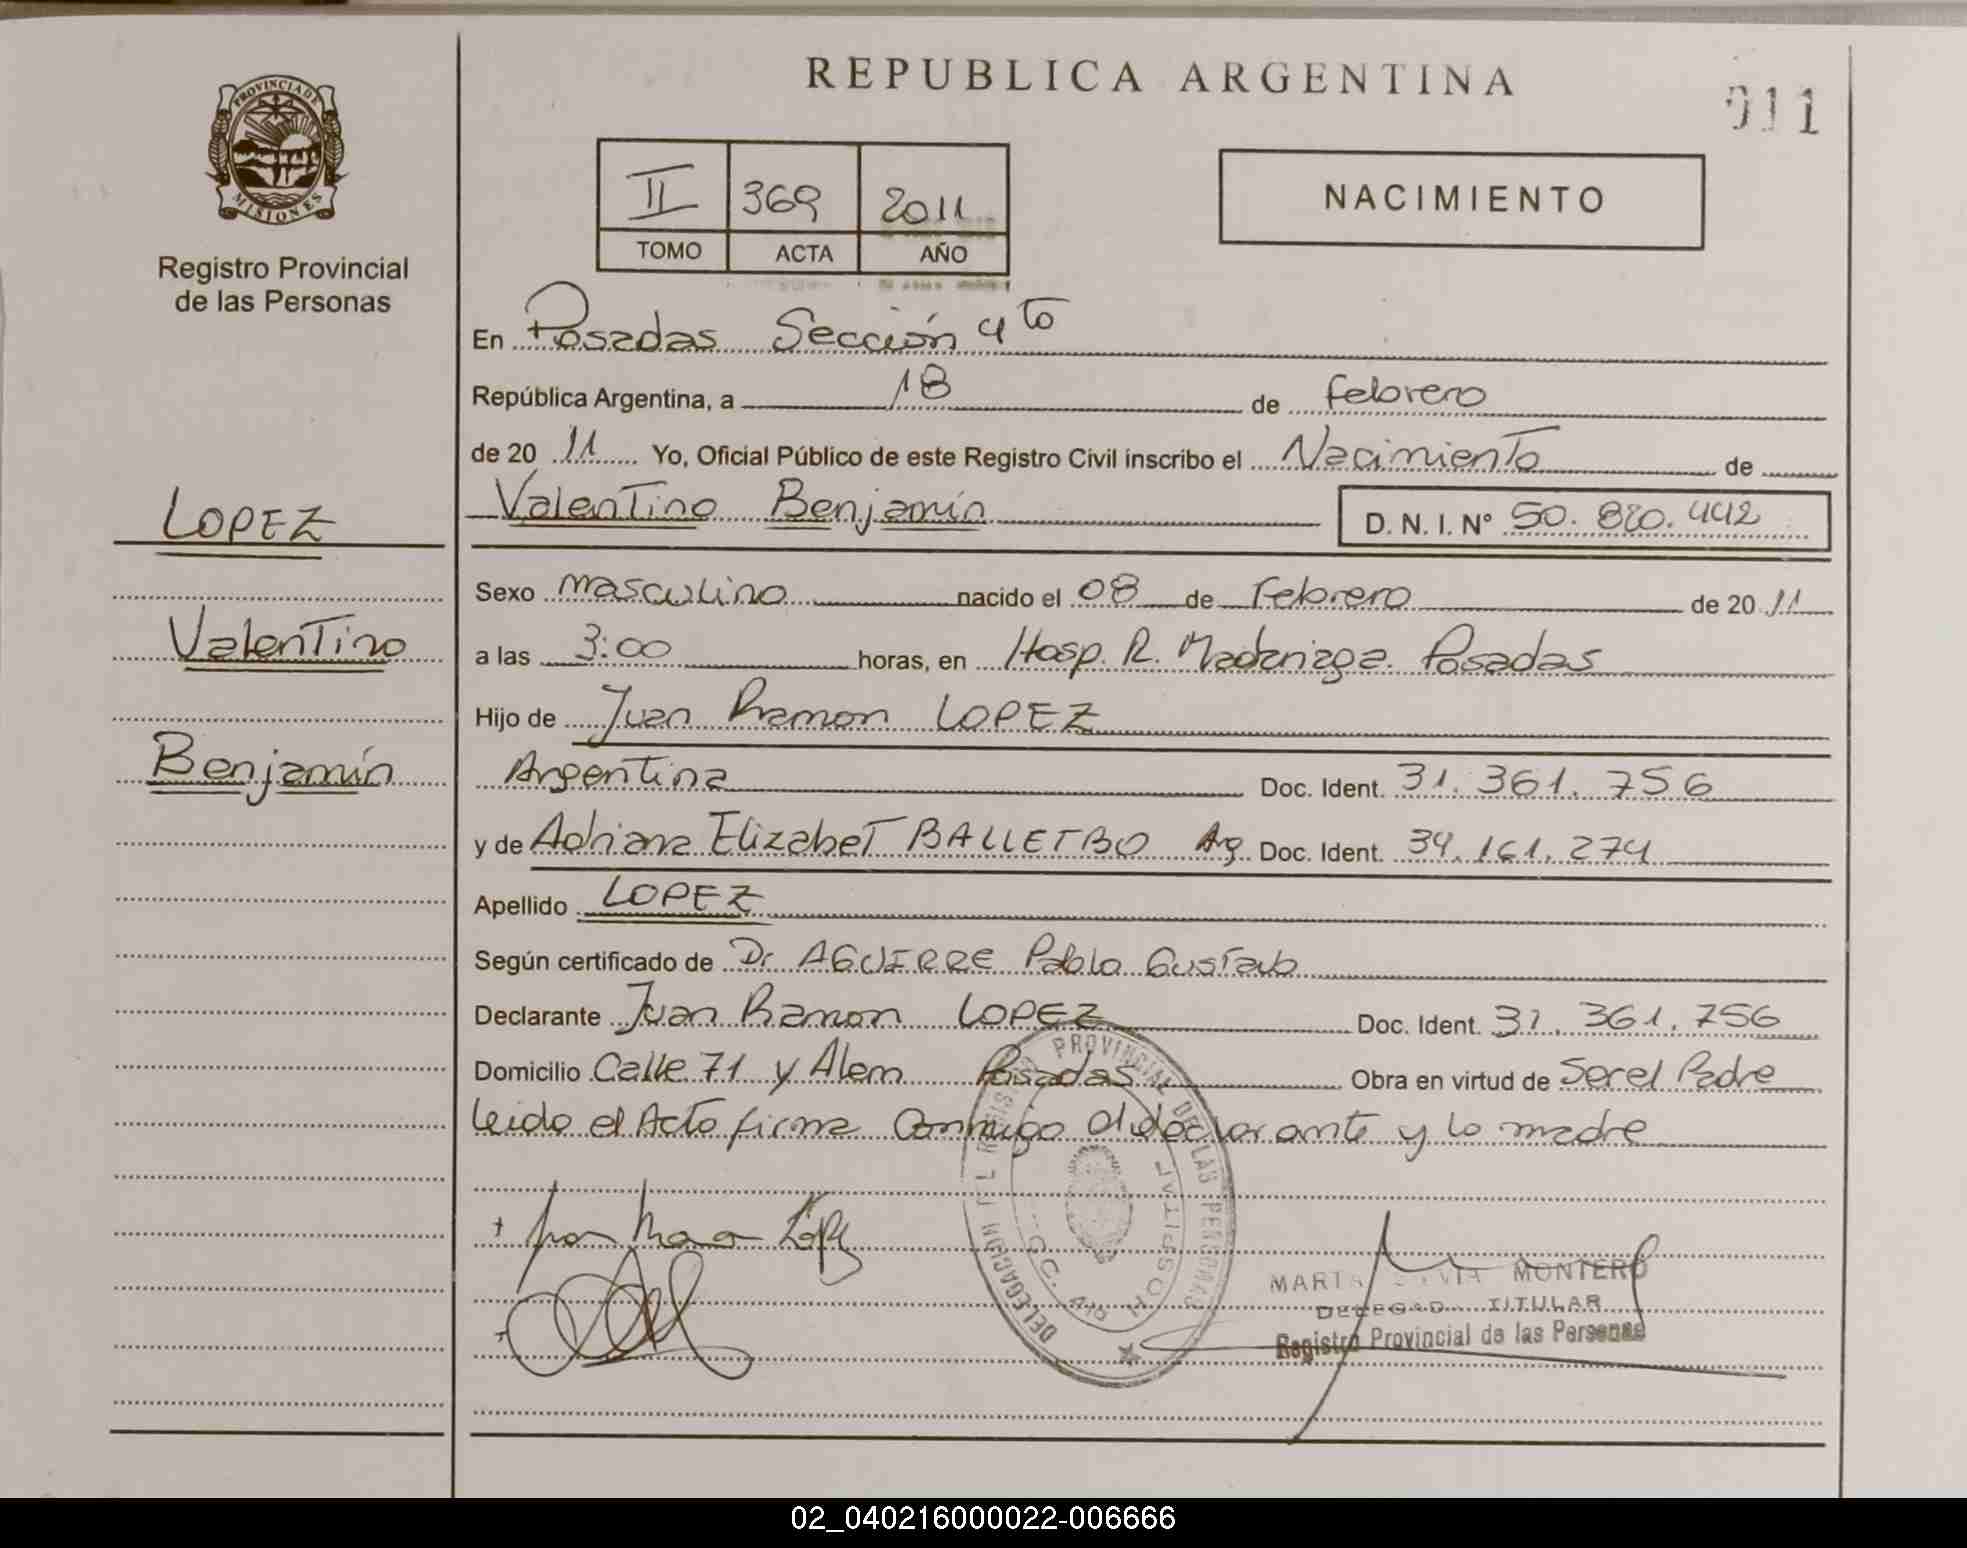 REPUBLICA ARGENTINA
011
PROVINCIA DE
MISIONES
Registro Provincial
de las Personas
II 369 2011
TOMO ACTA AÑO
NACIMIENTO
En Posadas Sección 4to
República Argentina, a 18 de febrero
de 20 11 Yo, Oficial Público de este Registro Civil inscribo el Nacimiento de
Valentino Benjamín D. N. I. N° 50.820.442
LOPEZ
Valentino
Benjamín
Sexo masculino nacido el 08 de Febrero de 20 11
a las 3:00 horas, en Hosp. R. Madariaga. Posadas
Hijo de Juan Ramon LOPEZ
Argentina Doc. Ident. 31.361.756
y de Adriana Elizabet BALLETBO Arg. Doc. Ident. 34.161.274
Apellido LOPEZ
Según certificado de Dr AGUIRRE Pablo Gustavo
Declarante Juan Ramon LOPEZ Doc. Ident. 31.361.756
Domicilio Calle 71 y Alem Posadas Obra en virtud de Ser el Padre
leido el Acto firma Conmigo el declarante y la madre
DELEGACION DEL REGISTRO PROVINCIAL DE LAS PERSONAS
HOSPITAL
MONTERO
TITULAR
Registro Provincial de las Personas
02_040216000022-006666